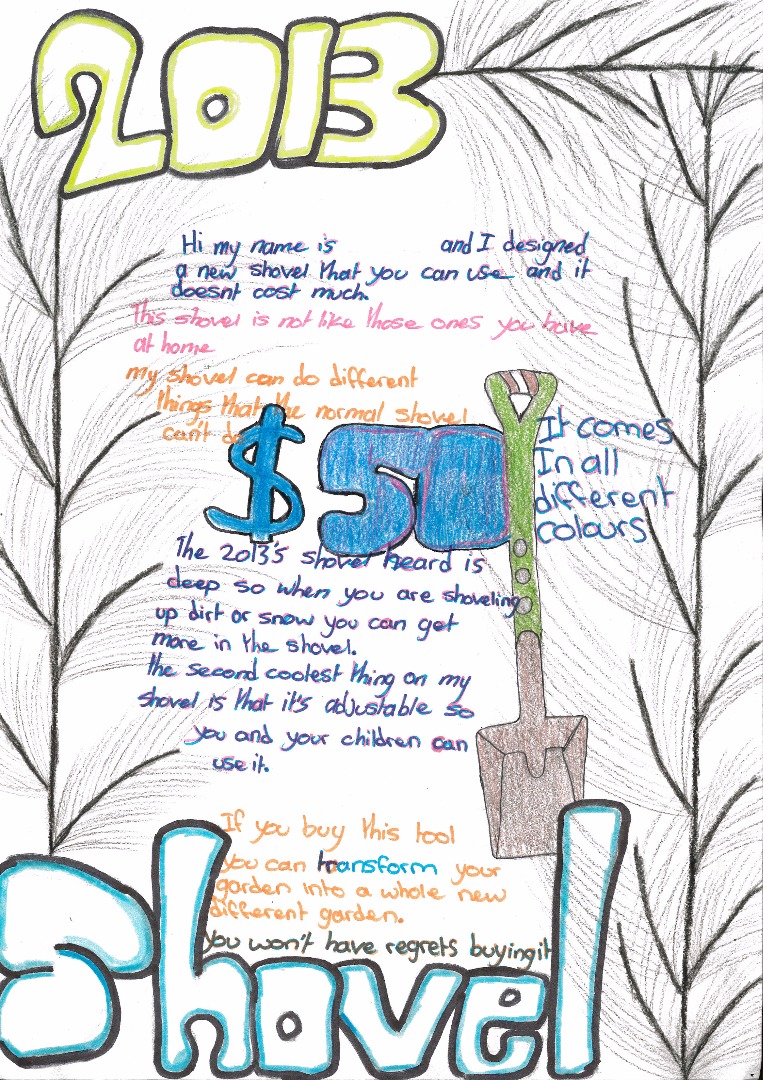 2013
Hi my name is and I designed
a new shovel that you can use and it
doesnt cost much.
This shovel is not like those ones you have
at home
my shovel can do different
things that the normal shovel
can't do
$50
It comes
In all
different
colours
The 2013's shovel heard is
deep so when you are shoveling
up dirt or snow you can get
more in the shovel.
the second coolest thing on my
shovel is that it's adjustable so
you and your children can
use it.
If you buy this tool
you can transform your
garden into a whole new
different garden.
you won't have regrets buying it
Shovel